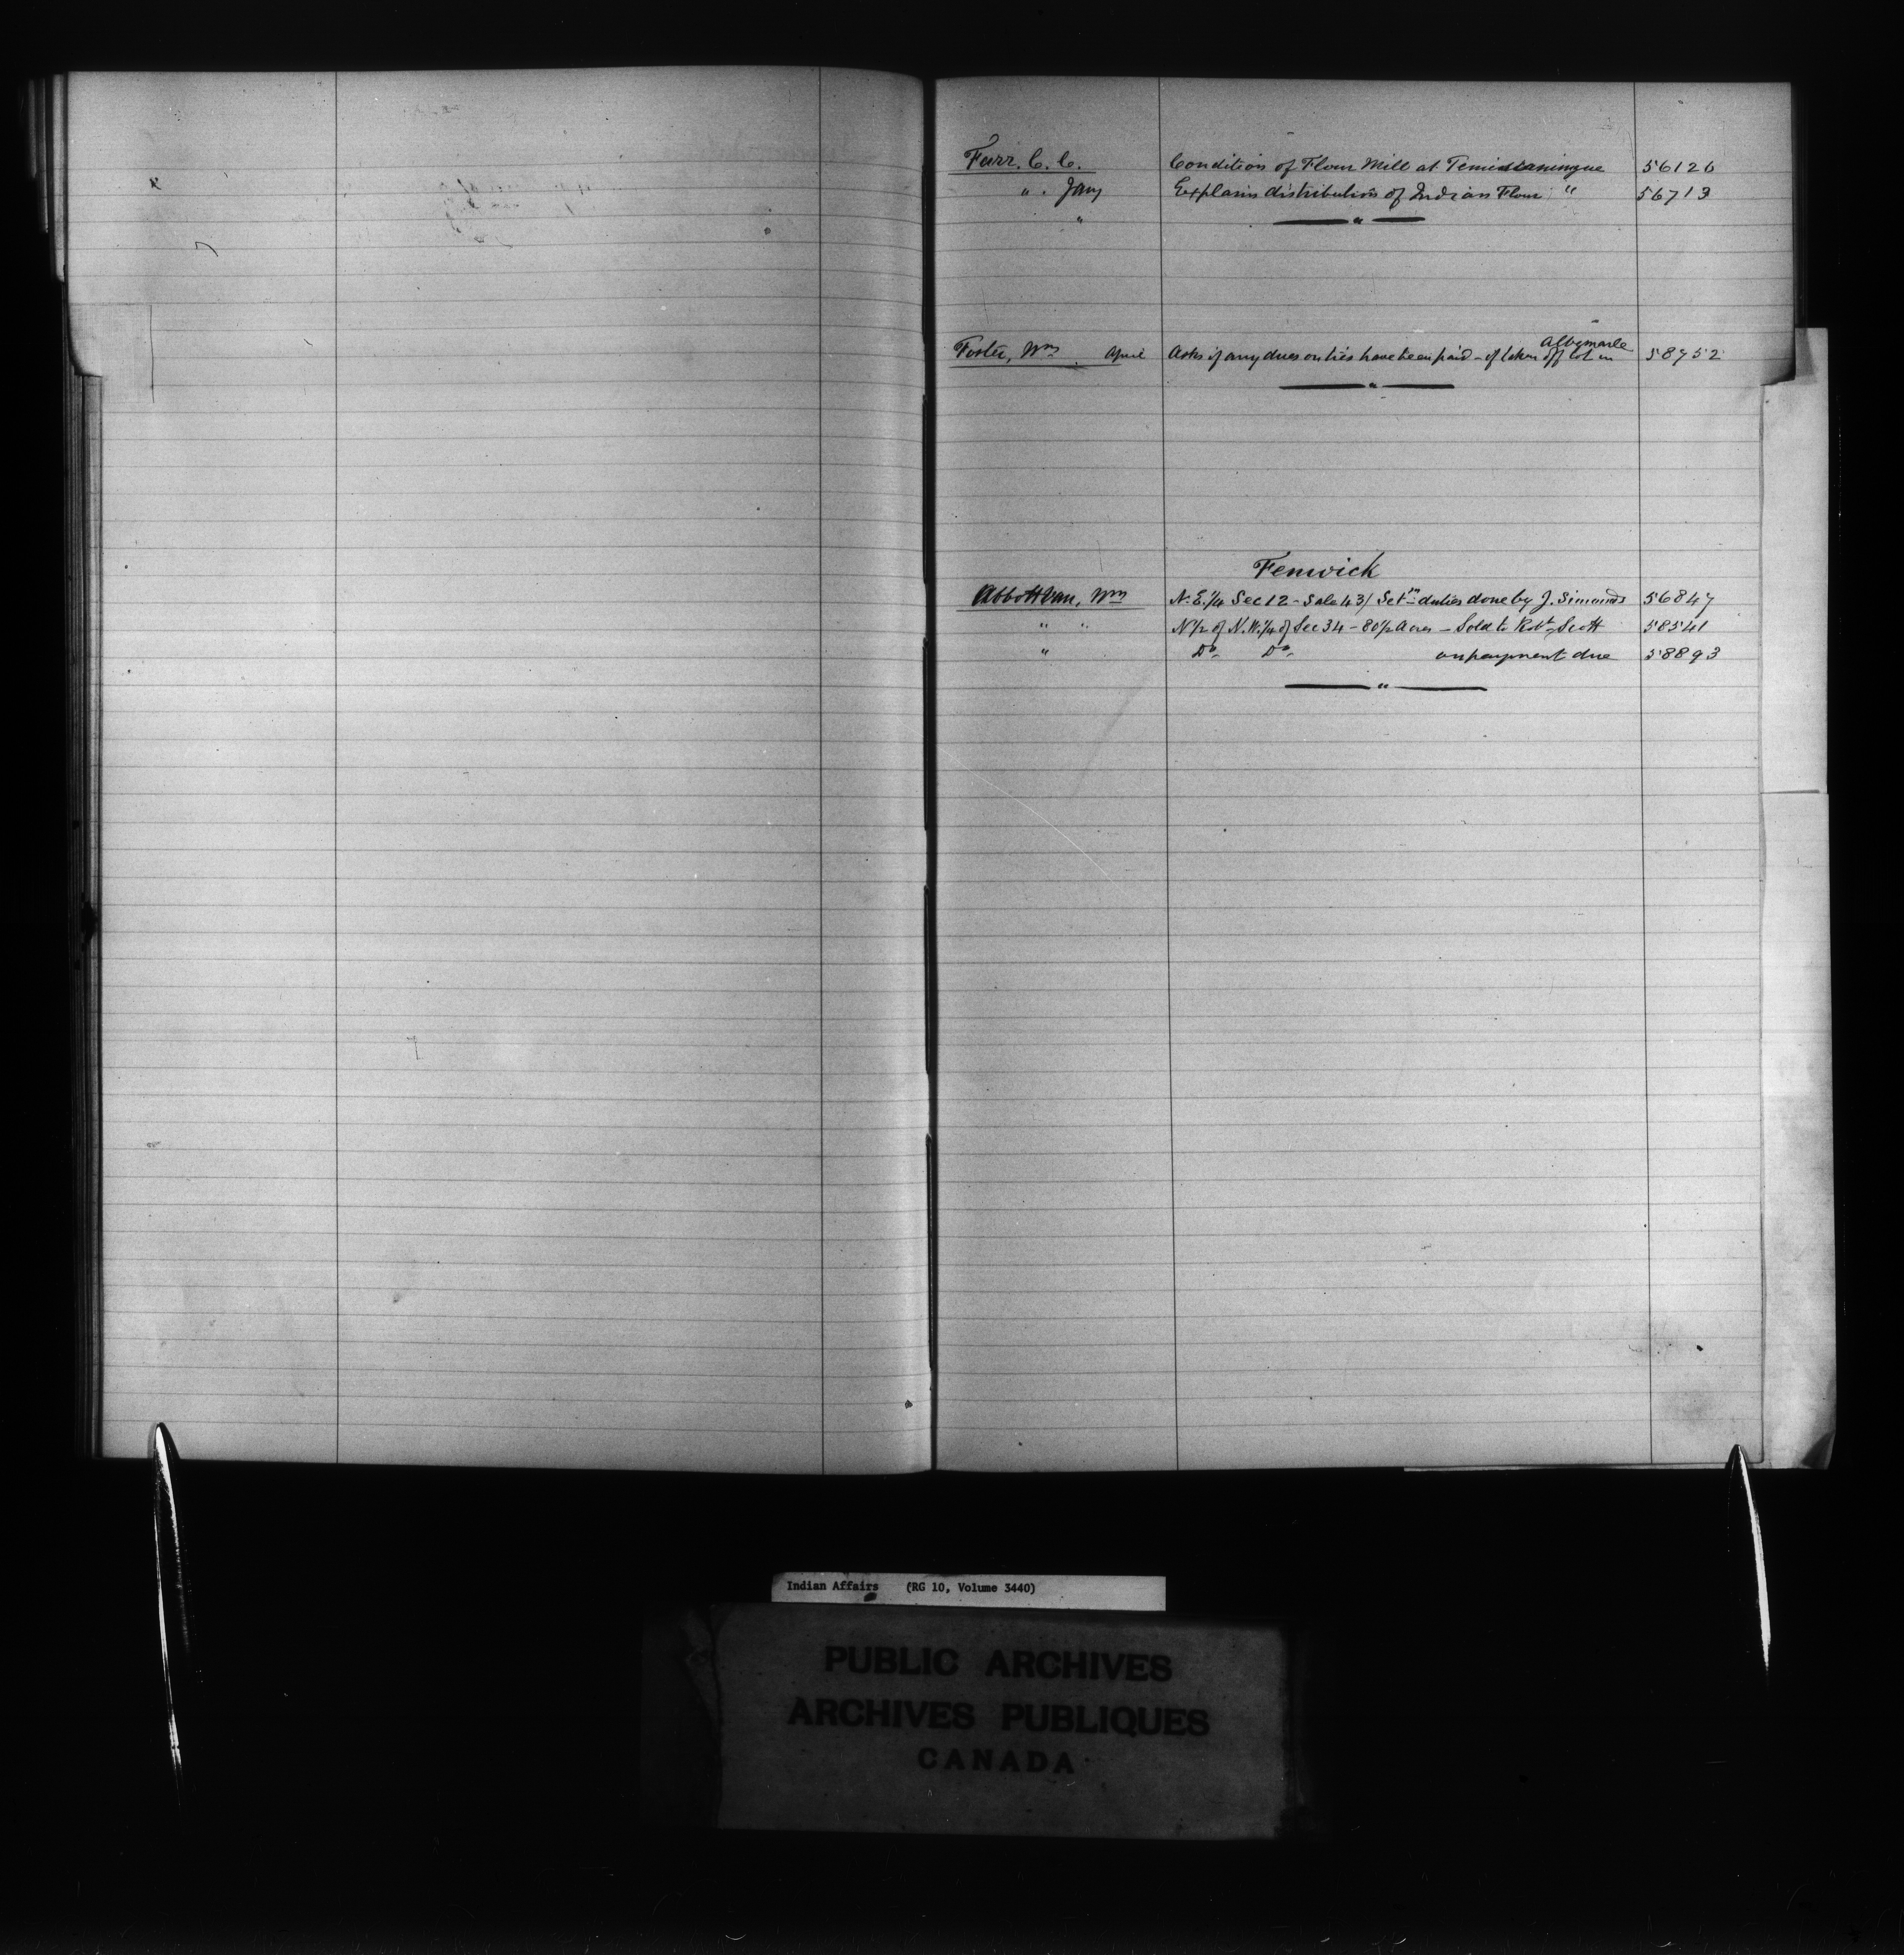 Farr. C. C. Condition of Flour Mill at Temiscamingue 56126
" . Jany Explains distribution of Indian Flour " 56713
" — " —
Albemarle
Foster, Wm April Asks if any dues on ties have been paid - if taken off lot in 58752
— " —
Fenwick
Abbott Van, Wm N.E. 1/4 Sec 12 - Sale 43/ Setm duties done by J. Simonds 56847
" " N 1/2 of N.W. 1/4 of Sec 34 - 80 1/2 Acres - Sold to Robt Scott 58541
" Do Do on payment due 58893
— " —
Indian Affairs (RG 10, Volume 3440)
PUBLIC ARCHIVES
ARCHIVES PUBLIQUES
CANADA